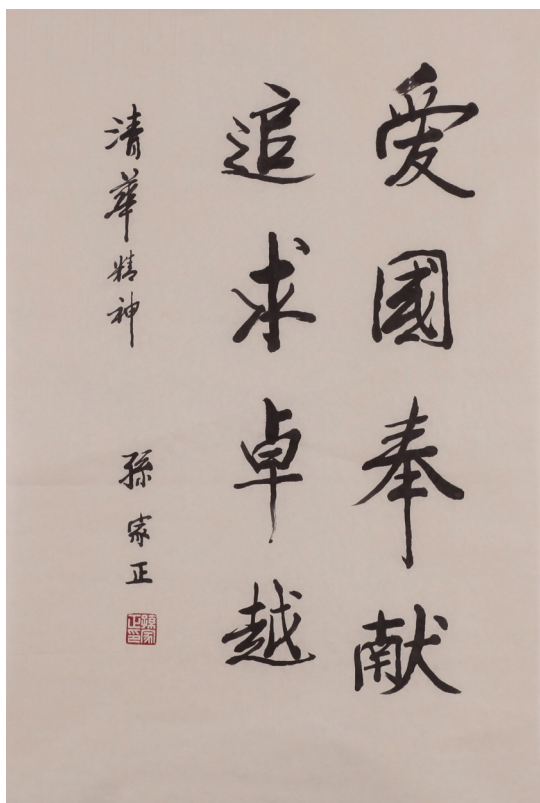 爱國奉献
追求卓越
清華精神
孫家正
孫家正印